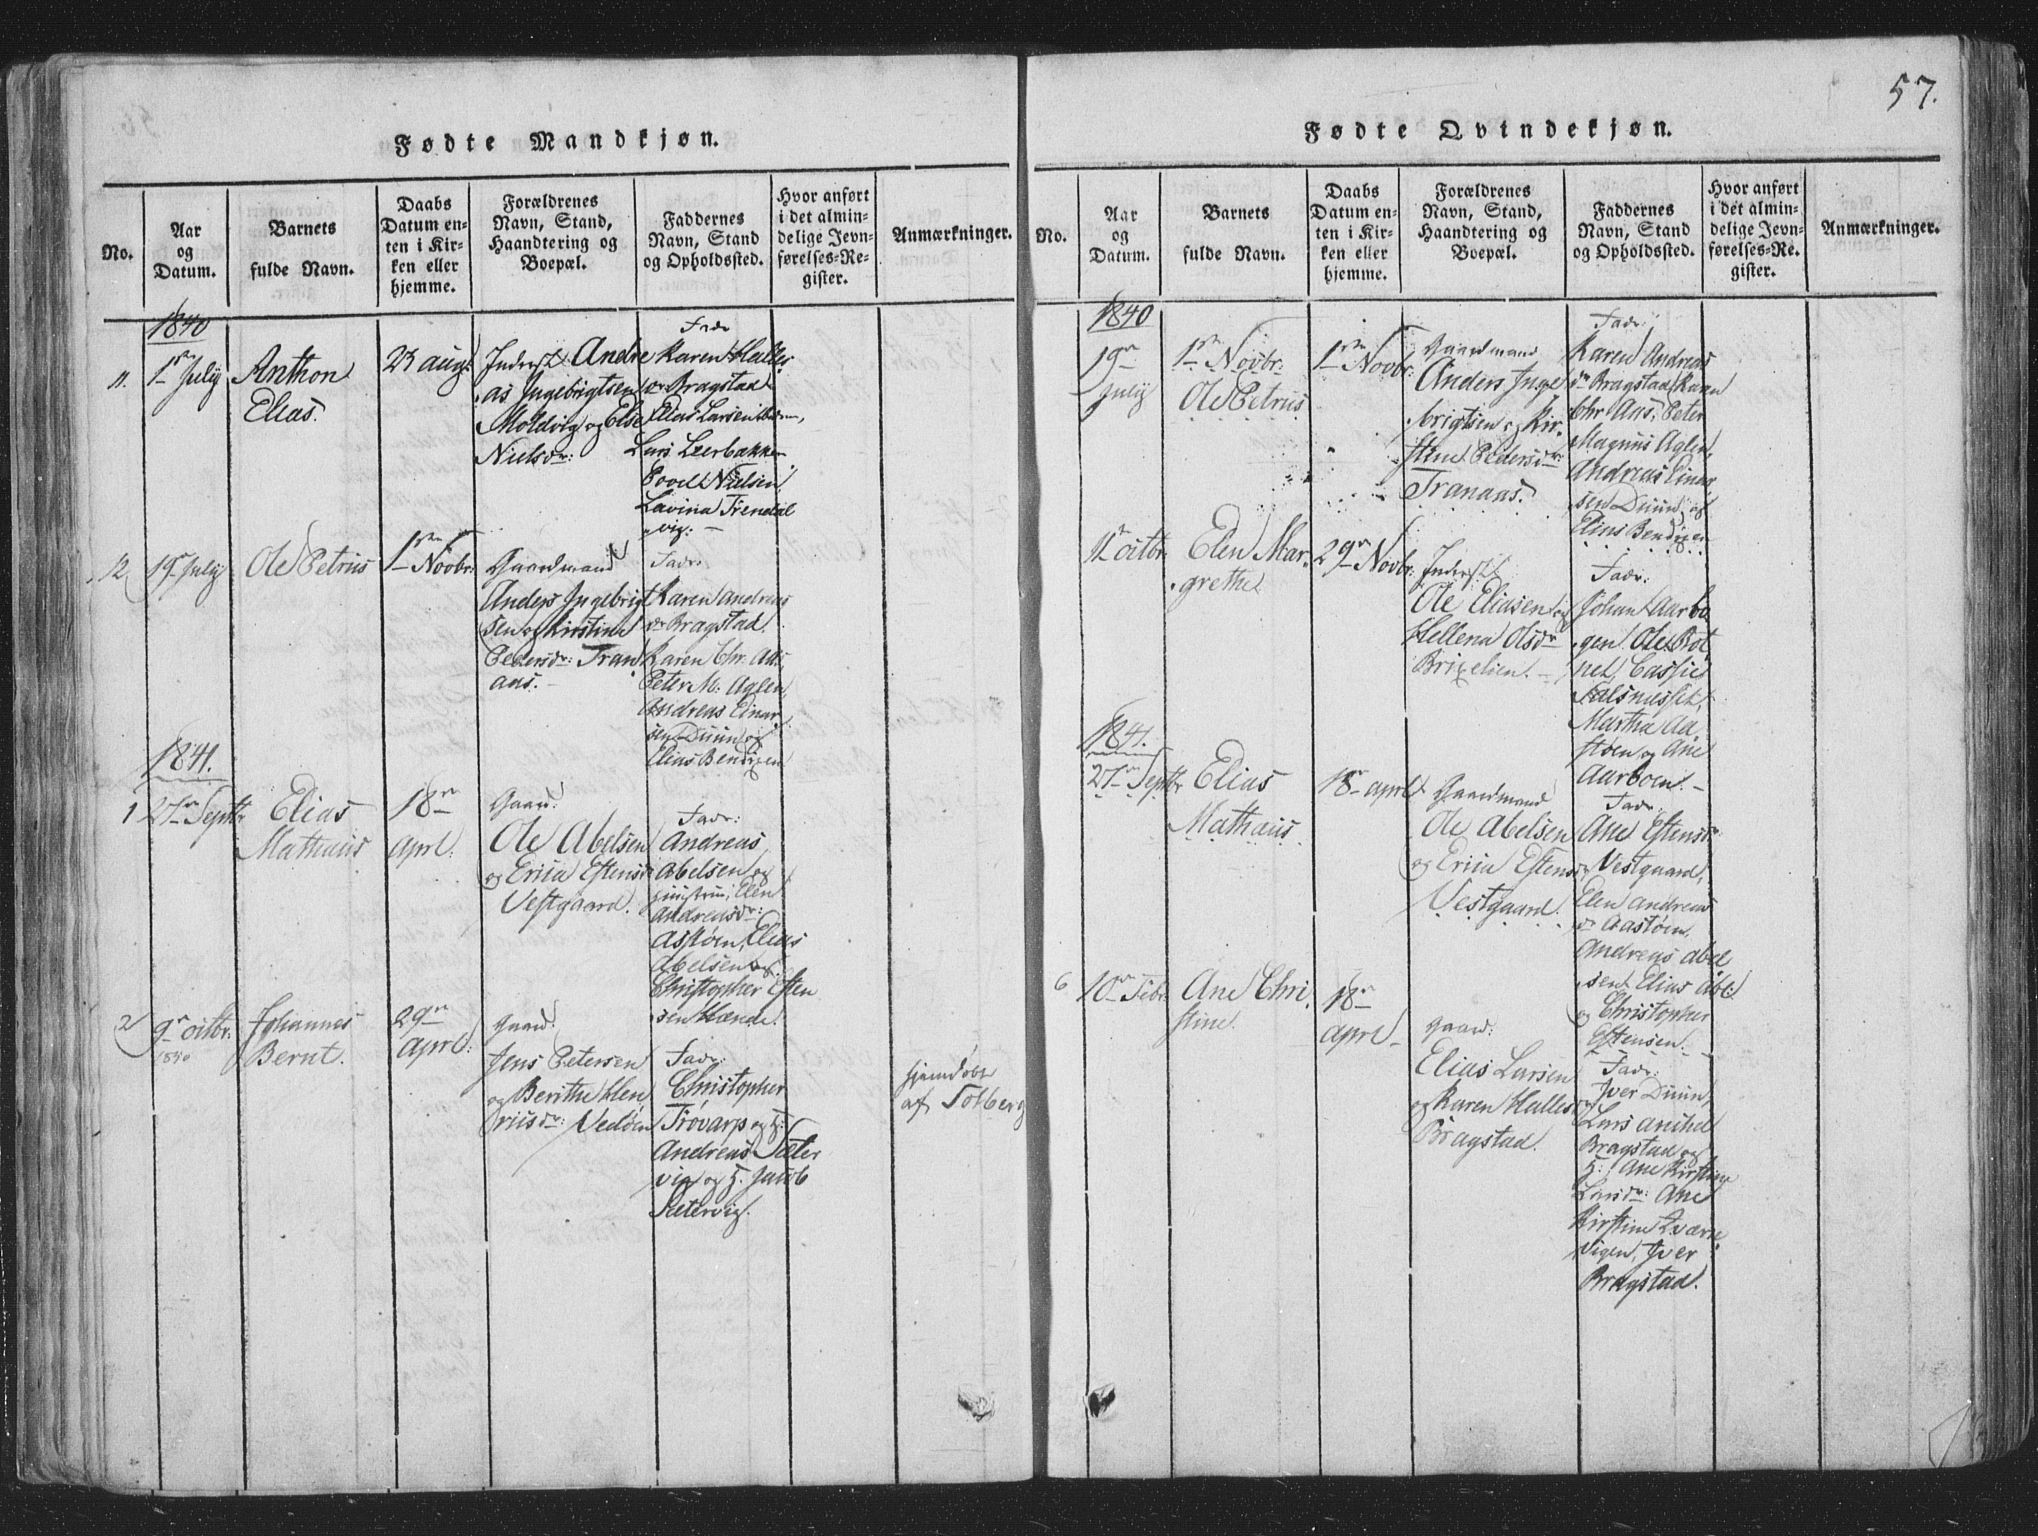 57.
Fødte Mandkjøn.
No.
Aar
og
Datum.
Barnets
fulde Navn.
Daabs
Datum en-
ten i Kir-
ken eller
hjemme.
Forældrenes
Navn, Stand,
Haandtering og
Boepæl.
Faddernes
Navn, Stand
og Opholdssted.
Hvor anført
i det almin-
delige Jevn-
førelses-Re-
gister.
Anmærkninger.
1840
11.
1ste July
Anthon
Elias.
23 augt
Inderst Andre
as Ingebrigtsen
Moldvig og Else
Nielsdr:
Fadr
Karen Halles
dr Bragstad
Elias Larsen
Lars Leerbakken
Povel Nielsen
Lavina Trendal
vig. –
12
19de July
Ole Petrus
1ste Novbr:
Gaardmand
Anders Ingebrigt
sen og Kirstine
Pedersdr: Tran
aas. –
Fadr:
Karen Andreas
dr Bragstad.
Karen Chr. Aas
Peter M. Aglen,
Andreas Einar
sen Duun og
Elias Bendixen
1841.
1
27de Septbr
Elias
Mathæus
18de
Aprl:
Gaard:
Ole Abelsen
og Erica Estensdr
Vestgaard.
Fadr:
Andreas
Abelsen og
Elen
Andreasdr:
Asstøen, Elias
Abelsen og
Christopher Esten
sen
2
9de octbr:
1840
Johannes
Bernt.
29de
Aprl:
Gaard.
Jens Petersen
og Berithe Hen
riksdr: Vedøen
Fadr:
Christopher
Trøvarp og H:
Andreas Sæter
vig og H. Jacob
Sætervig.
hjemdøbt
af Solberg
Fødte Qvindekjøn.
No.
Aar
og
Datum.
Barnets
fulde Navn.
Daabs
Datum en-
ten i Kir-
ken eller
hjemme.
Forældrenes
Navn, Stand,
Haandtering og
Boepæl.
Faddernes
Navn, Stand
og Opholdssted.
Hvor anført
i det almin-
delige Jevn-
førelses-Re-
gister.
Anmærkninger.
1840
19de
July
1ste Novbr:
Ole Petrus
1ste Novbr:
Gaardmand
Anders Inge
brigtsen og Kir-
stine Pedersdr:
Tranaas.
Fadr:
Karen Andreas
dr Bragstad, Karen
Chr Aas, Peter
Magnus Aglen,
Andreas Einar
sen Duun, og
Elias Bendixen
11te octbr:
Elen Mar-
grethe
29de Novbr:
Inderst
Ole Eliasen og
Hellena Olsdr
Brixelien. –
Fadr:
Johan Aarbo
gen Ole Bot
net,
Salsnesset,
Martha Aa
støen og Ane
Aarboen. –
1841.
27de Septbr
Elias
Mathæus
18de Aprl
Gaardmand
Ole Abelsen
og Ericia Estensdr
Vestgaard.
Fadr:
Ane Estensdr
Vestgaard,
Elen Andreas
dr Aastøen
Andreas Abel
sen Elias Abel
og Christopher
Estensen. –
6
10de Febr:
Ane Chri
stine.
18de
Aprl –
Gaard:
Elias Larsen
og Karen Hallesdr
Bragstad.
Fadr:
Iver Duun,
Lars
Bragstad og
H: Ane Kirstine
Larsdr: Ane
Kirstine Kværne
vigen, Iver
Bragstad.